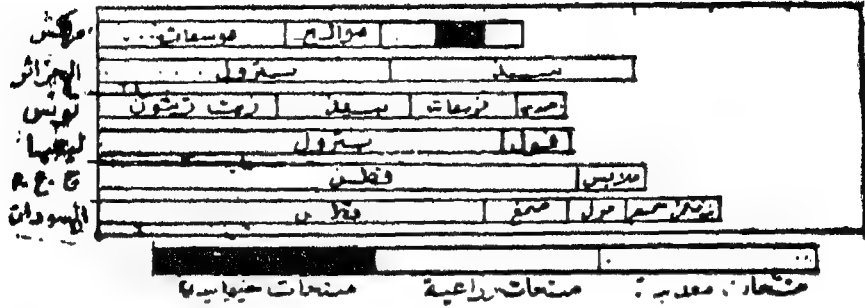 مراكش فوسفات موالح
الجزائر بترول نبيذ
تونس زيت زيتون نبيذ فوسفات حديد
ليبيا بترول فول
ج.ع.م قطن ملابس
السودان قطن صمغ فول سمسم
منتجات معدنية منتجات زراعية منتجات